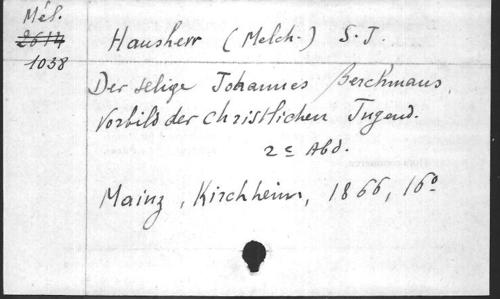 Mél.
2614
1038
Hausherr (Melch.) S.J.
Der selige Johannes Berchmans,
Vorbild der christlichen Jugend.
2e Abd.
Mainz, Kirchheim, 1866, 16o